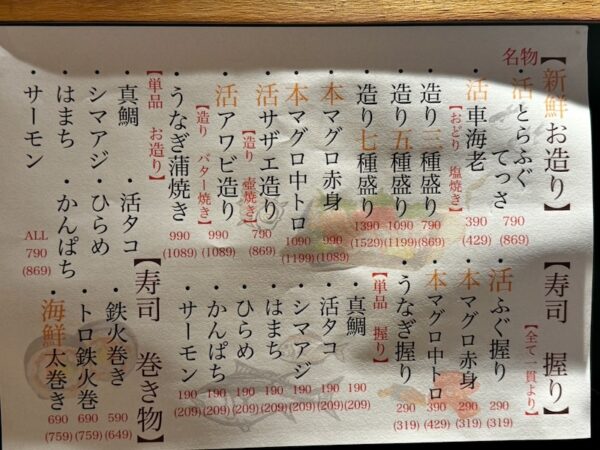 【新鮮お造り】
名物
・活とらふぐ
てっさ
790
(869)
・活車海老
【おどり 塩焼き】
390
(429)
・造り三種盛り
790
(869)
・造り五種盛り
1090
(1199)
・造り七種盛り
1390
(1529)
・本マグロ赤身
990
(1089)
・本マグロ中トロ
1090
(1199)
・活サザエ造り
【造り 壺焼き】
790
(869)
・活アワビ造り
【造り バター焼き】
990
(1089)
・うなぎ蒲焼き
990
(1089)
【単品 お造り】
・真鯛
・活タコ
・シマアジ
・ひらめ
・はまち
・かんぱち
・サーモン
ALL
790
(869)
【寿司 握り】
【全て一貫より】
・活ふぐ握り
290
(319)
・本マグロ赤身
290
(319)
・本マグロ中トロ
390
(429)
・うなぎ握り
290
(319)
【単品 握り】
・真鯛
190
(209)
・活タコ
190
(209)
・シマアジ
190
(209)
・はまち
190
(209)
・ひらめ
190
(209)
・かんぱち
190
(209)
・サーモン
190
(209)
【寿司 巻き物】
・鉄火巻き
590
(649)
・トロ鉄火巻
690
(759)
・海鮮太巻き
690
(759)